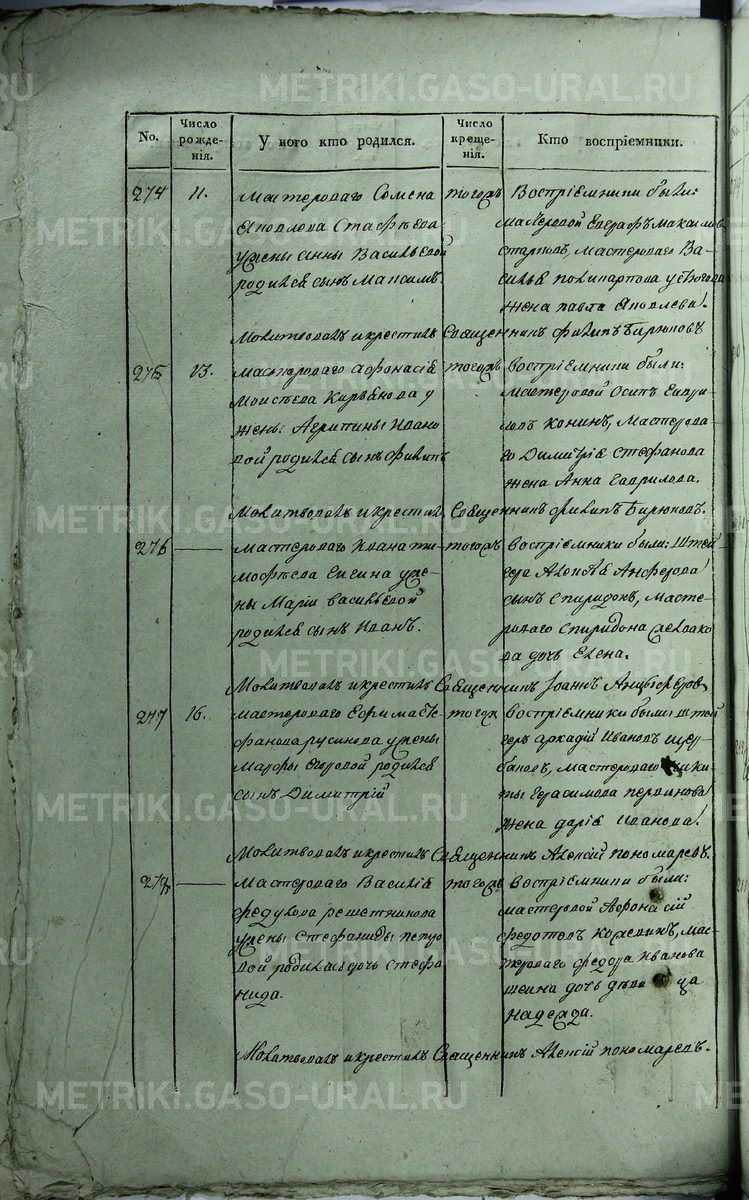 No.
Число рожде-нія.
У кого кто родился.
Число креще-нія.
Кто воспріемники.
274
11.
Мастероваго Семена
Яковлева
у жены Анны Васильевой
родился сынъ Максимъ.
тогожъ
Воспріемники были:
мастеровой Евграфъ
мастероваго Ва-
силья
жена Павла Яковлева
Молитвовалъ и крестилъ Священникъ Филипъ Бирюковъ
275
13.
Мастероваго Афонасія
Моисѣева у
жены Агрипины Ивано
вой родился сынъ Филипъ
тогожъ
Воспріемники были:
мастеровой Осипъ Гаври
ловъ Конинъ, Мастерова
го Димитрія Стефанова
жена Анна Гаврилова.
Молитвовалъ и крестилъ Священникъ Филипъ Бирюковъ.
276
Мастероваго Ивана Ти-
мофѣева у же-
ны Маріи Васильевой
родился сынъ Иванъ.
тогожъ
Воспріемники были: Штей
гера Алексѣя Анферова
сынъ Спиридонъ, Масте-
роваго Спиридона
ва дочь Елена.
Молитвовалъ и крестилъ Священникъ Іоаннъ
277
16.
Мастероваго Ефима Сте
фанова Русинова у жены
родился
сынъ Димитрій
тогожъ
Воспріемники были: штей
геръ Аркадій Ивановъ Щер-
баковъ, Мастероваго Ники-
ты Герасимова
жена Дарія Иванова
Молитвовалъ и крестилъ Священникъ Алексій Пономаревъ.
278
Мастероваго Василія
Федулова Решетникова
у жены Стефаниды Петро
вой родилась дочь Стефа-
нида.
тогожъ
Воспріемники были:
мастеровой Афонасій
Федотовъ мас-
тероваго Федора Иванова
дочь дѣвица
Надежда.
Молитвовалъ и крестилъ Священникъ Алексій Пономаревъ.
METRIKI.GASO-URAL.RU